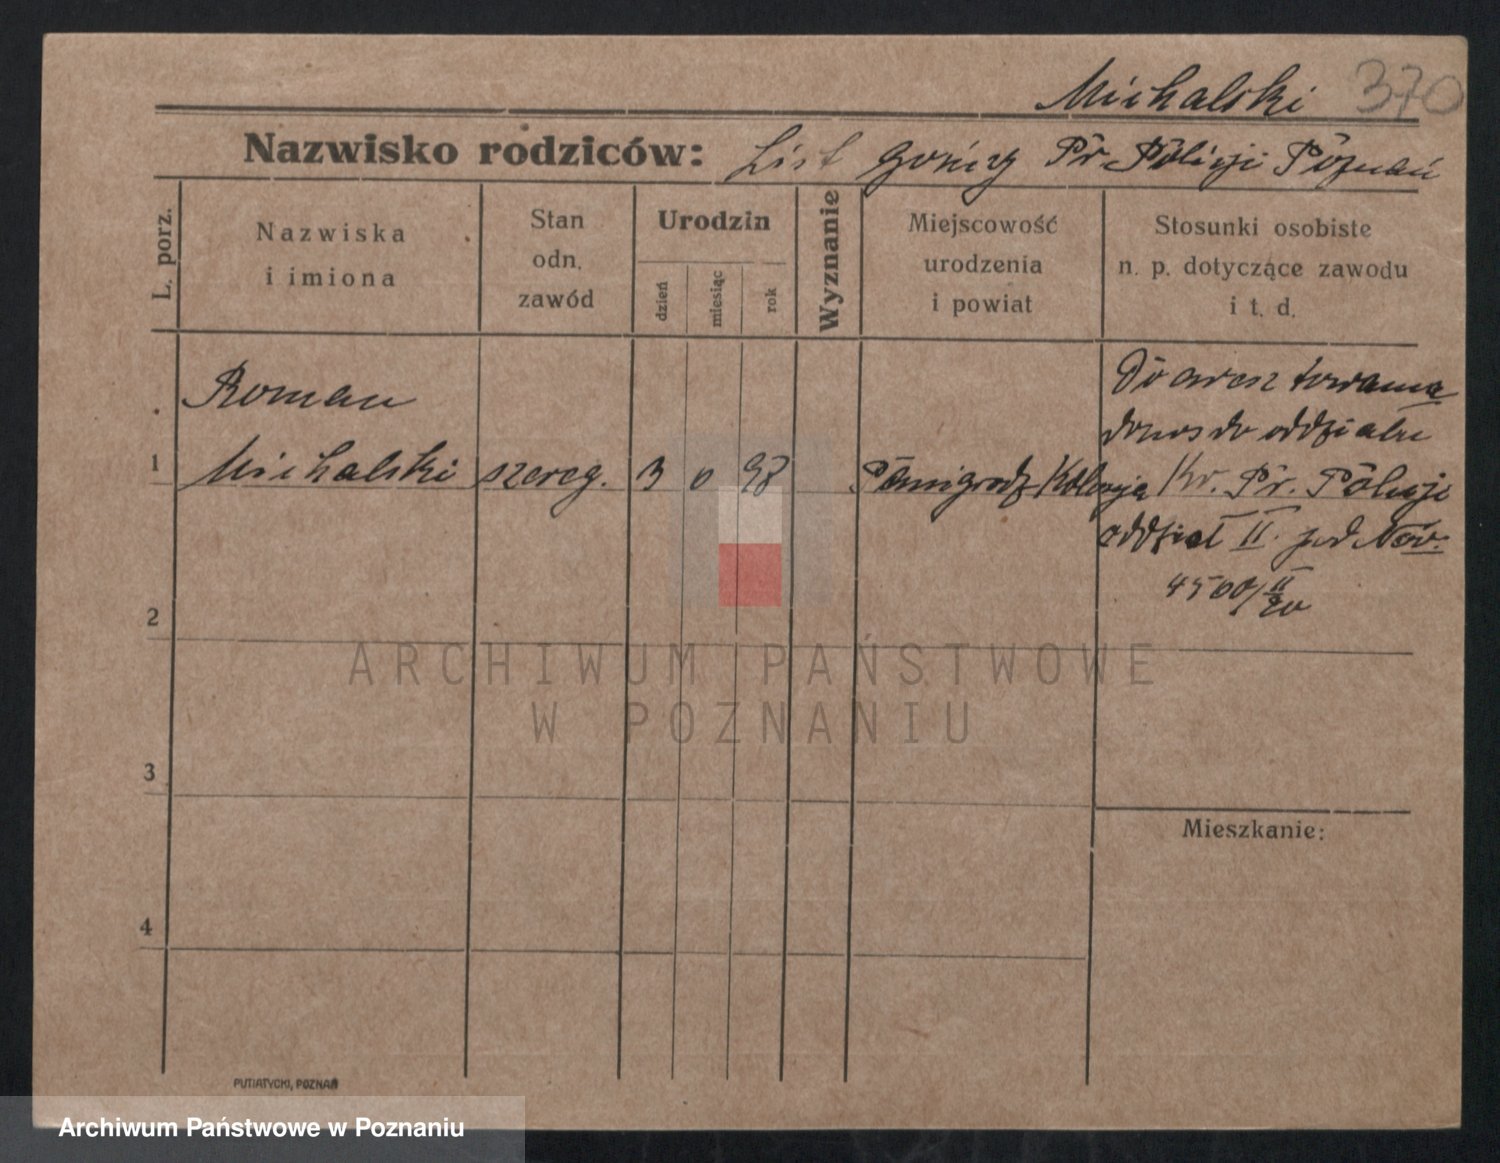 Michalski 370
Nazwisko rodziców: List gończy Pr. Policji Poznań
L. porz.
Nazwiska
i imiona
Stan
odn.
zawód
Urodzin
dzień
miesiąc
rok
Wyznanie
Miejscowość
urodzenia
i powiat
Stosunki osobiste
n. p. dotyczące zawodu
i t. d.
Roman
1 Michalski szereg. 3 98 Panigrodz Kolonja
Do aresztowania
donos do oddziału
Kr. Pr. Policji
oddział II. pod Nov.
4500/II 20
2
3
4
Mieszkanie:
PUTIATYCKI, POZNAŃ
ARCHIWUM PAŃSTWOWE
W POZNANIU
Archiwum Państwowe w Poznaniu